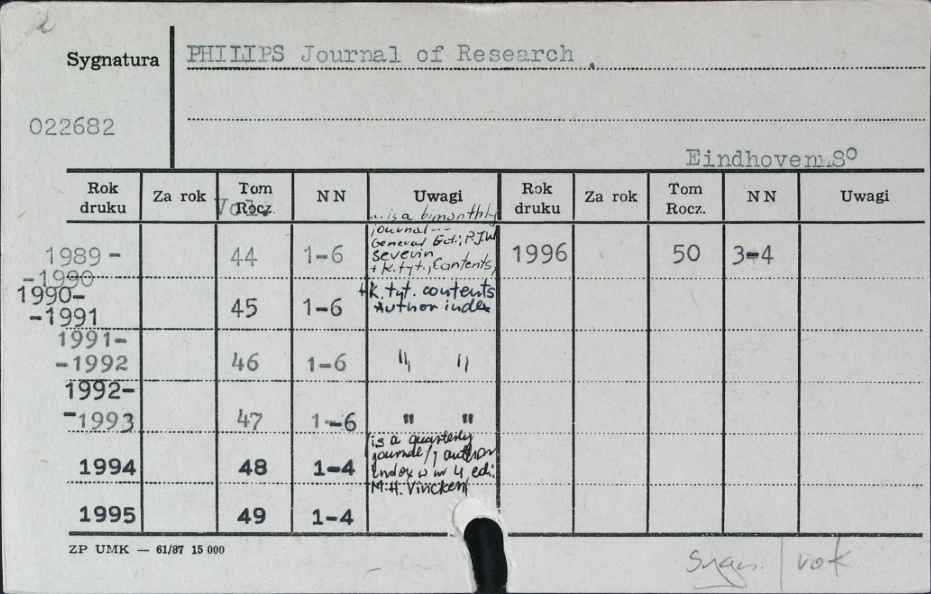 Sygnatura PHILIPS Journal of Research.
022682
Eindhoven.8°
Rok druku Za rok Tom Rocz. Vol. N N Uwagi Rok druku Za rok Tom Rocz. N N Uwagi
...is a bimonthly
journal ---
General Ed.; P.J.W
Severin
+ k.tyt., Contents,
1989 - -1990 44 1-6 1996 50 3-4
+k. tyt. contents
Author index
1990- -1991 45 1-6
1991- -1992 46 1-6 " "
1992- -1993 47 1-6 " "
is a quarterly
journale / author
index w nr 4 edi:
M.H. Vincken
1994 48 1-4
1995 49 1-4
ZP UMK — 61/87 15 000
Sygn. | vok